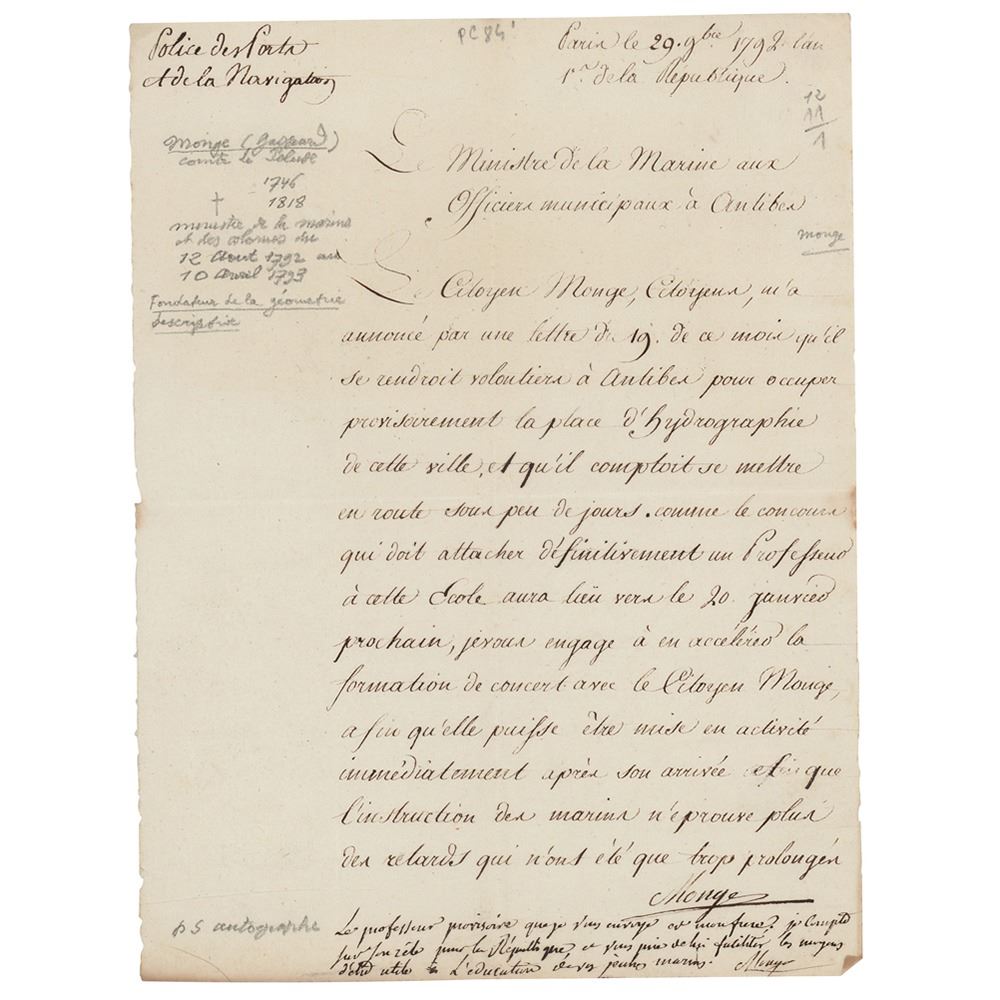 Police des Ports
et de la Navigation
PC 84
Paris le 29. 9bre 1792. l'an
1er de la République.
12
11
1
Monge (Gaspard)
comte de Peluse
1746
† 1818
ministre de la marine
et des colonies du
12 Aout 1792 au
10 Avril 1793
Fondateur de la géometrie
descriptive
Le Ministre de la Marine aux
Officiers municipaux à Antibes
Monge
Le Citoyen Monge, Citoyens, m'a
annoncé par une lettre du 19. de ce mois qu'il
se rendroit volontiers à Antibes pour occuper
provisoirement la place d'hydrographie
de cette ville, et qu'il comptoit se mettre
en route sous peu de jours. comme le concours
qui doit attacher définitivement un Professeur
à cette Ecole aura lieu vers le 20. janvier
prochain, je vous engage à en accélérer la
formation de concert avec le Citoyen Monge,
afin qu'elle puisse être mise en activité
immédiatement après son arrivée afin que
l'instruction des marins n'éprouve plus
des retards qui n'ont été que trop prolongés
Monge
PS autographe
Le professeur provisoire que je vous envoye est mon frere, je compte
sur son zèle pour la République et vous prie de lui faciliter les moyens
d'être utile à L'education de vos jeunes marins. Monge